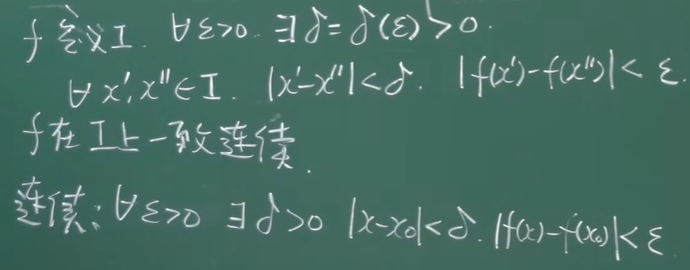 f 定义 I. ∀ε>0. ∃δ=δ(ε)>0.
∀x',x''∈I. |x'-x''|<δ. |f(x')-f(x'')|<ε.
f在I上一致连续.
连续: ∀ε>0 ∃δ>0 |x-x₀|<δ. |f(x)-f(x₀)|<ε